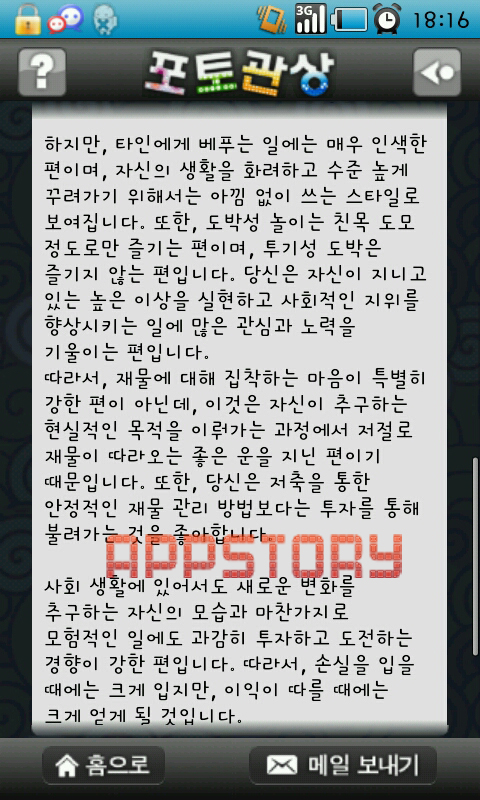 3G
18:16
?
포토관상
하지만, 타인에게 베푸는 일에는 매우 인색한
편이며, 자신의 생활을 화려하고 수준 높게
꾸려가기 위해서는 아낌 없이 쓰는 스타일로
보여집니다. 또한, 도박성 놀이는 친목 도모
정도로만 즐기는 편이며, 투기성 도박은
즐기지 않는 편입니다. 당신은 자신이 지니고
있는 높은 이상을 실현하고 사회적인 지위를
향상시키는 일에 많은 관심과 노력을
기울이는 편입니다.
따라서, 재물에 대해 집착하는 마음이 특별히
강한 편이 아닌데, 이것은 자신이 추구하는
현실적인 목적을 이뤄가는 과정에서 저절로
재물이 따라오는 좋은 운을 지닌 편이기
때문입니다. 또한, 당신은 저축을 통한
안정적인 재물 관리 방법보다는 투자를 통해
불려가는 것을 좋아합니다.
APPSTORY
사회 생활에 있어서도 새로운 변화를
추구하는 자신의 모습과 마찬가지로
모험적인 일에도 과감히 투자하고 도전하는
경향이 강한 편입니다. 따라서, 손실을 입을
때에는 크게 입지만, 이익이 따를 때에는
크게 얻게 될 것입니다.
홈으로
메일 보내기